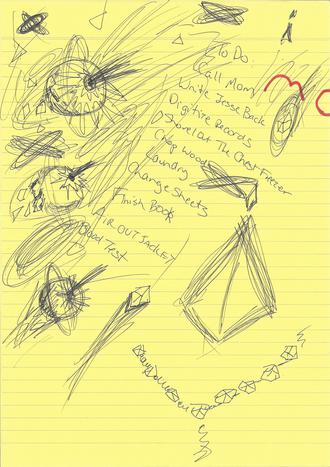 To Do
Call Mom
Write Jesse Back
Digitize Records
Shovel out The Chest Freezer
Chop Wood
Laundry
Change Sheets
Finish Book
AIR OUT JACKET
Blood Test